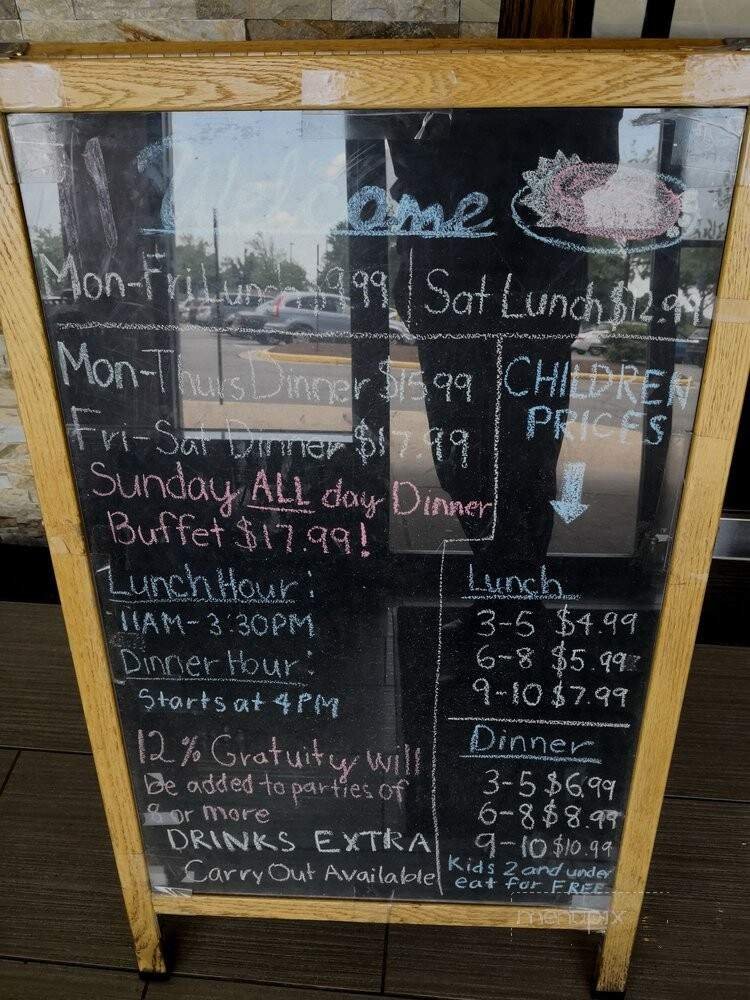 Welcome
Mon-Fri Lunch $9.99 | Sat Lunch $12.99
Mon-Thurs Dinner $15.99
Fri-Sat Dinner $17.99
Sunday ALL day Dinner
Buffet $17.99!
CHILDREN
PRICES
Lunch Hour:
11AM-3:30PM
Dinner Hour:
Starts at 4PM
12% Gratuity will
be added to parties of
8 or more
DRINKS EXTRA
Carry Out Available
Lunch
3-5 $4.99
6-8 $5.99
9-10 $7.99
Dinner
3-5 $6.99
6-8 $8.99
9-10 $10.99
Kids 2 and under
eat for FREE
menupix